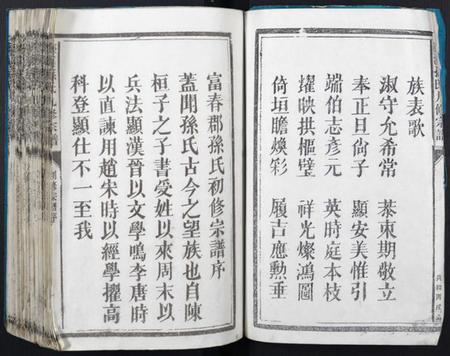 族表歌
淑守允希常 恭東期敬立
奉正旦尙子 顯安美惟引
端伯志彥元 英時庭本枝
燿映拱樞璧 祥光燦鴻圖
倚垣瞻煥彩 履吉應勲垂
富春郡孫氏初修宗譜序
蓋聞孫氏古今之望族也自陳
桓子之子書受姓以來周末以
兵法顯漢晉以文學鳴李唐時
以直諫用趙宋時以經學擢高
科登顯仕不一至我